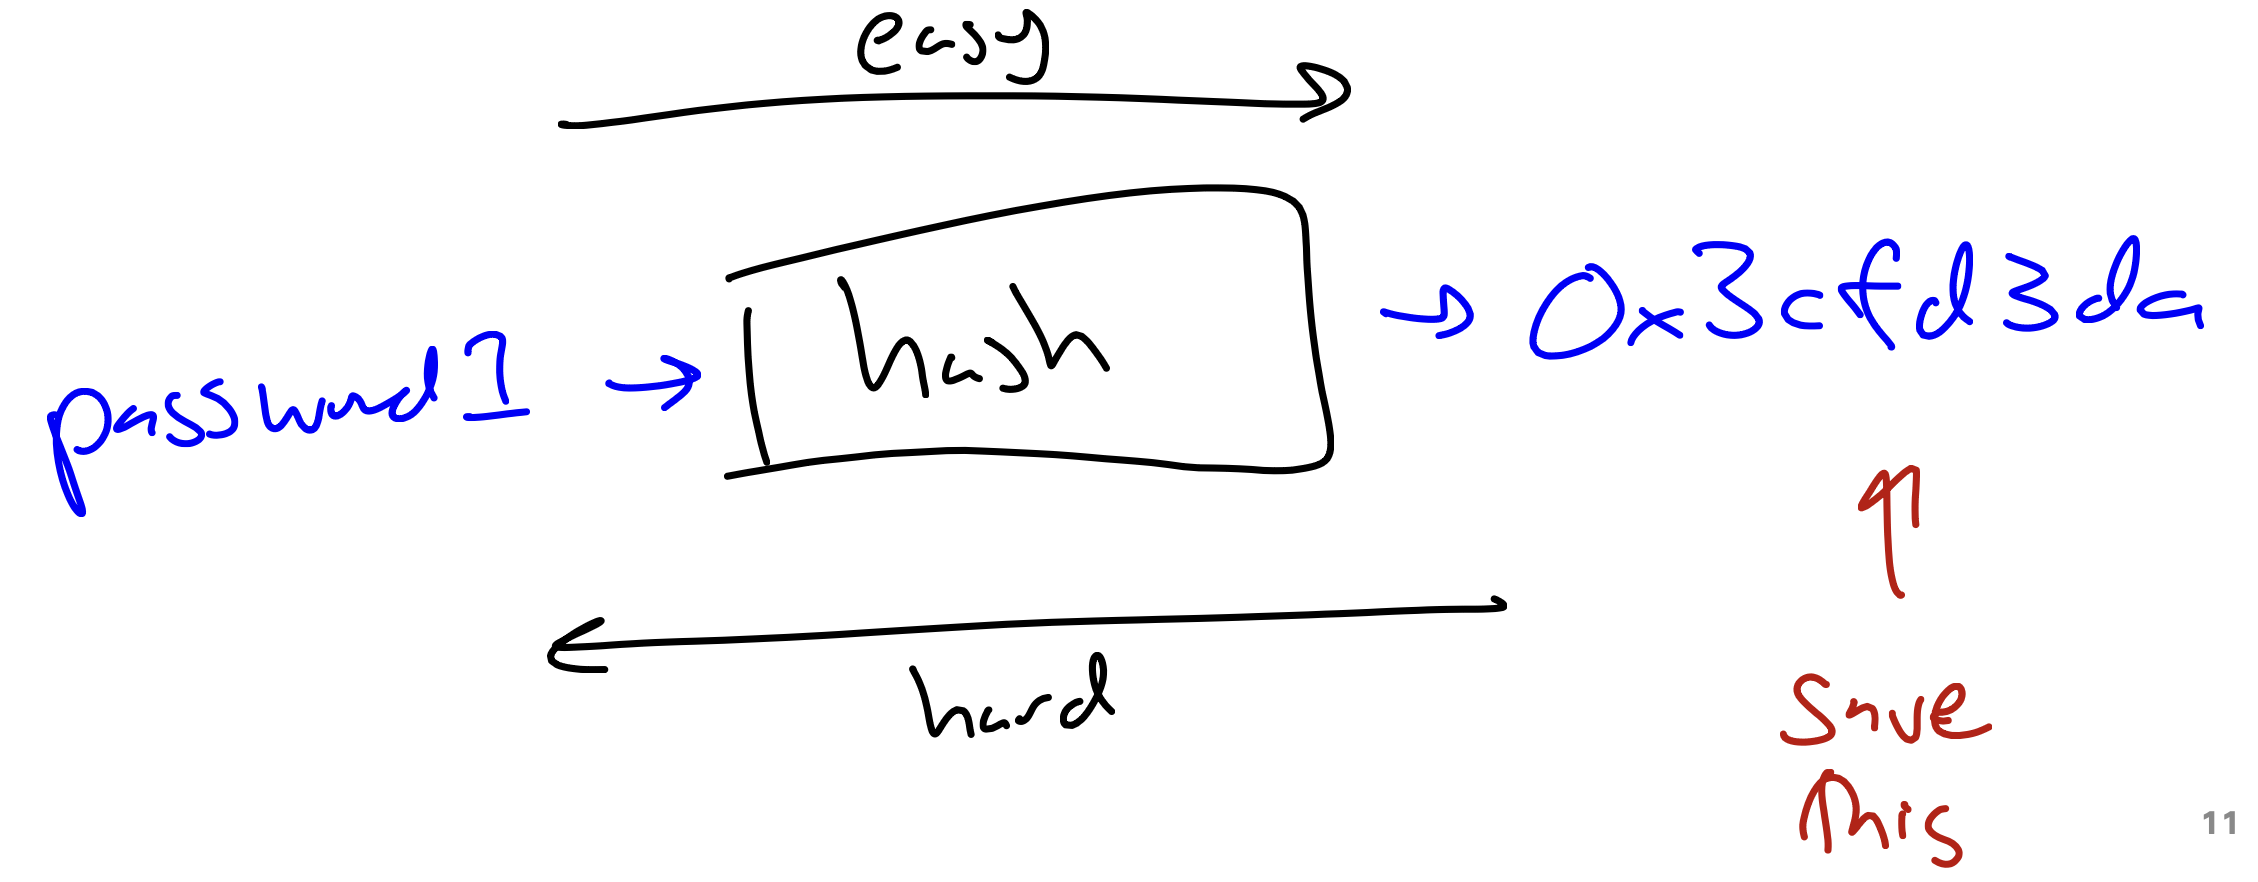 easy
password1 → hash → 0x3cfd3da
hard
save
this
11